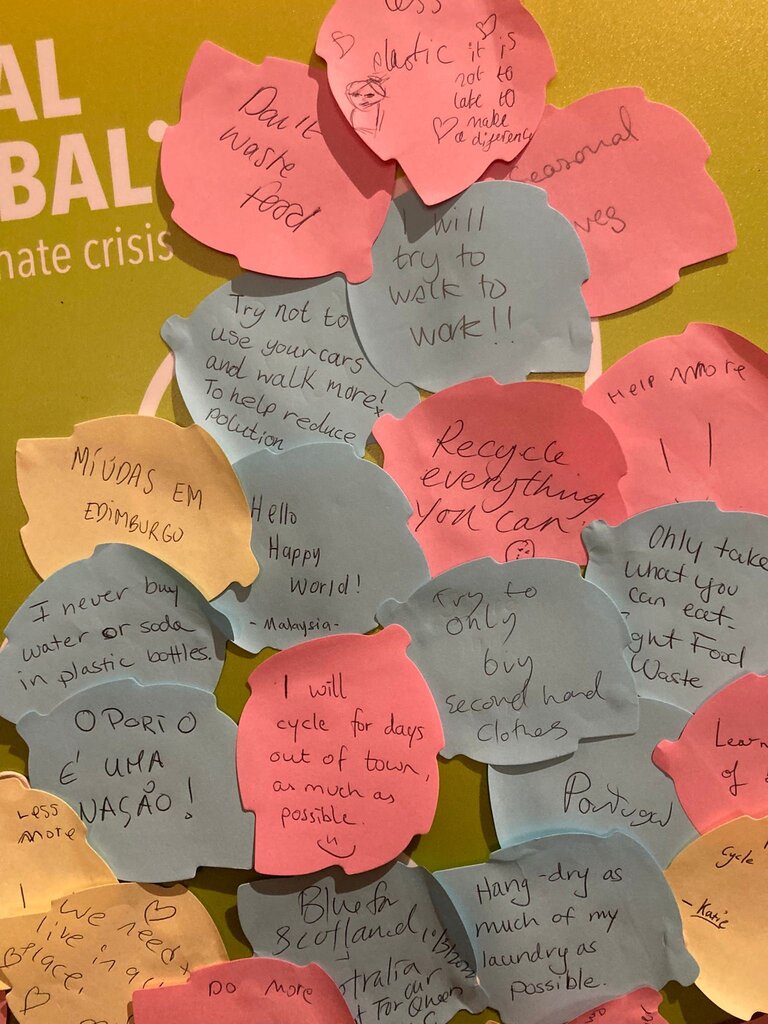 AL
BAL
mate crisis
less
plastic it is
not to
late to
make
a diference
Don't
waste
food
Seasonal
veg
I will
try to
walk to
work!!
Try not to
use your cars
and walk more!
To help reduce
polution
Help more
Recycle
everything
you can.
MIÚDAS EM
EDIMBURGO
Hello
Happy
World!
- Malaysia -
Only take
what you
can eat-
ght Food
Waste
Try to
only
buy
second hand
clothes
I never buy
water or soda
in plastic bottles.
I will
cycle for days
out of town,
as much as
possible.
O PORTO
É UMA
NAÇÃO!
Portugal
Learn
of
Less
more
Cycle
- Katie
Hang-dry as
much of my
laundry as
possible.
Blue for
Scotland
We need
live in a
place,
Do more